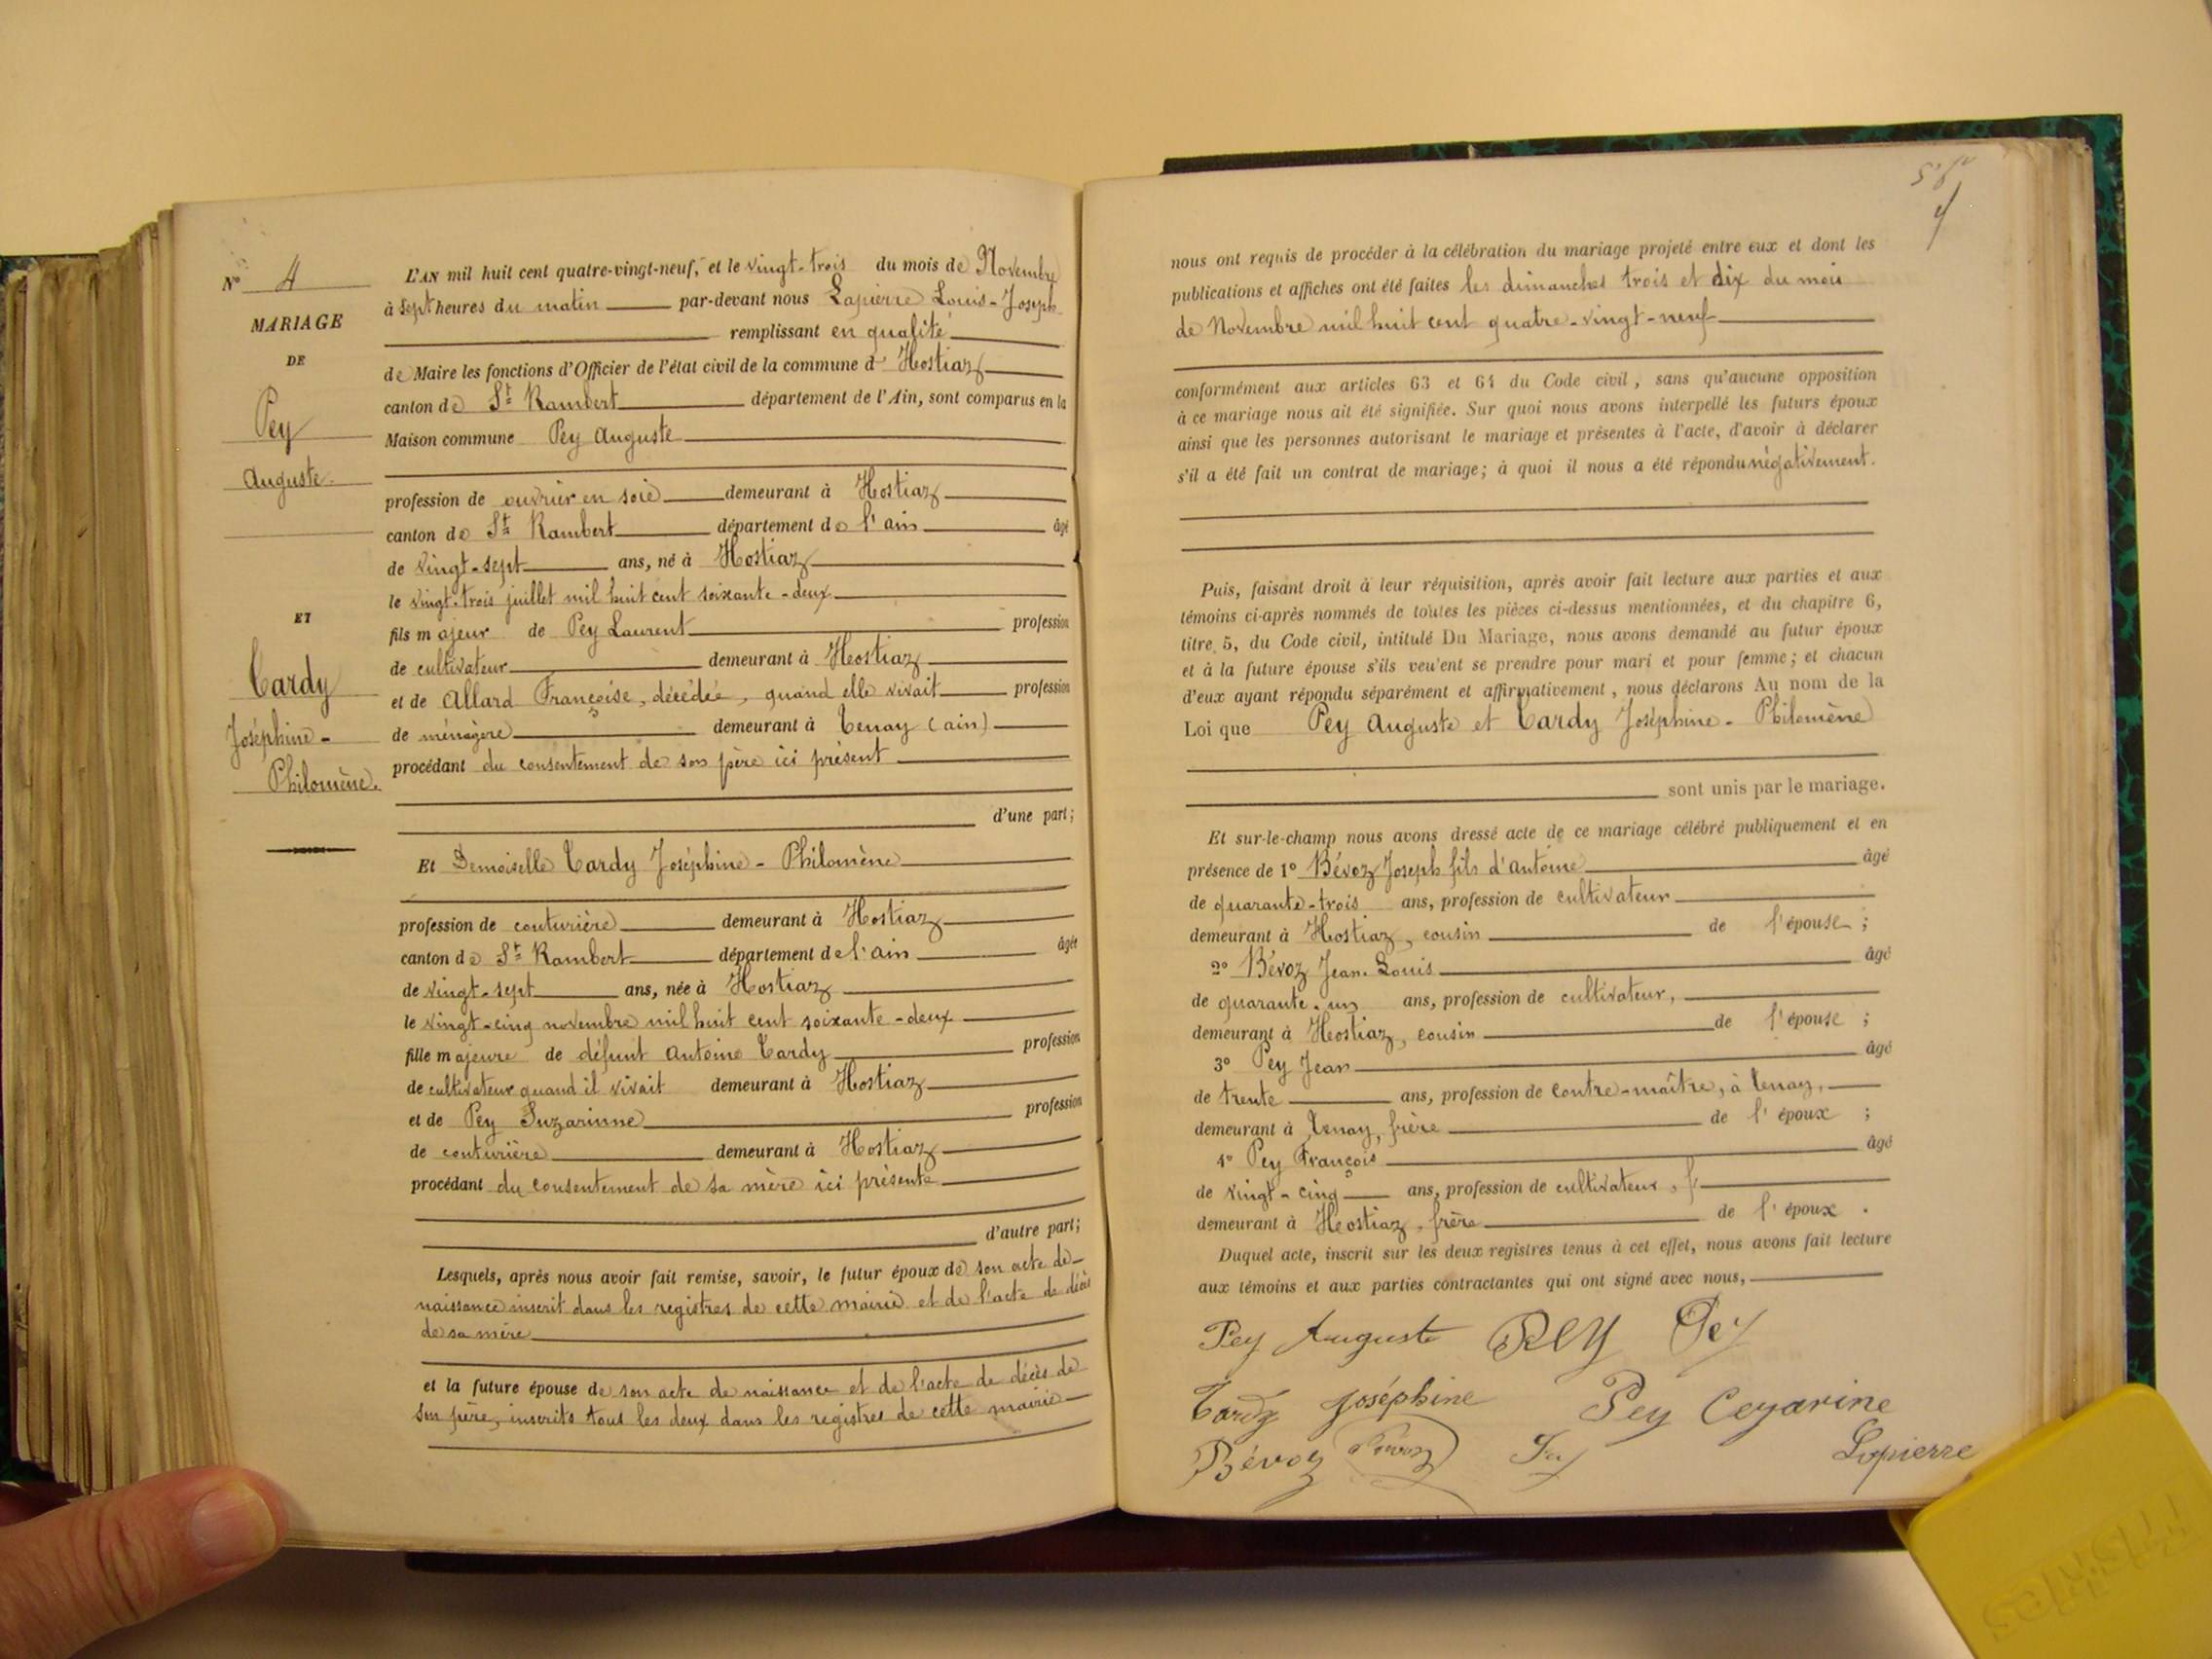 N° 4
MARIAGE
DE
Pey
Auguste.
ET
Tardy
Joséphine-
Philomène.
L'AN mil huit cent quatre-vingt-neuf, et le vingt-trois du mois de Novembre
à sept heures du matin par-devant nous Lapierre Louis-Joseph
remplissant en qualité
de Maire les fonctions d'Officier de l'état civil de la commune d' Hostiaz
canton de St Rambert département de l'Ain, sont comparus en la
Maison commune Pey Auguste
profession de ouvrier en soie demeurant à Hostiaz
canton de St Rambert département de l'ain âgé
de vingt-sept ans, né à Hostiaz
le vingt-trois juillet mil huit cent soixante-deux
fils majeur de Pey Laurent profession
de cultivateur demeurant à Hostiaz
et de Allard Françoise, décédée, quand elle vivait profession
de ménagère demeurant à Tenay (ain)
procédant du consentement de son père ici présent
d'une part;
Et Demoiselle Tardy Joséphine-Philomène
profession de couturière demeurant à Hostiaz
canton de St Rambert département de l'ain âgée
de vingt-sept ans, née à Hostiaz
le vingt-cinq novembre mil huit cent soixante-deux
fille majeure de défunt Antoine Tardy profession
de cultivateur quand il vivait demeurant à Hostiaz
et de Pey Suzarinne profession
de couturière demeurant à Hostiaz
procédant du consentement de sa mère ici présente
d'autre part;
Lesquels, après nous avoir fait remise, savoir, le futur époux de son acte de
naissance inscrit dans les registres de cette mairie et de l'acte de décès
de sa mère
et la future épouse de son acte de naissance et de l'acte de décès de
son père, inscrits tous les deux dans les registres de cette mairie
nous ont requis de procéder à la célébration du mariage projeté entre eux et dont les
publications et affiches ont été faites les dimanches trois et dix du mois
de Novembre mil huit cent quatre-vingt-neuf
conformément aux articles 63 et 64 du Code civil, sans qu'aucune opposition
à ce mariage nous ait été signifiée. Sur quoi nous avons interpellé les futurs époux
ainsi que les personnes autorisant le mariage et présentes à l'acte, d'avoir à déclarer
s'il a été fait un contrat de mariage; à quoi il nous a été répondu négativement.
Puis, faisant droit à leur réquisition, après avoir fait lecture aux parties et aux
témoins ci-après nommés de toutes les pièces ci-dessus mentionnées, et du chapitre 6,
titre 5, du Code civil, intitulé Du Mariage, nous avons demandé au futur époux
et à la future épouse s'ils veulent se prendre pour mari et pour femme; et chacun
d'eux ayant répondu séparément et affirmativement, nous déclarons Au nom de la
Loi que Pey Auguste et Tardy Joséphine-Philomène
sont unis par le mariage.
Et sur-le-champ nous avons dressé acte de ce mariage célébré publiquement et en
présence de 1° Bévoz Joseph fils d'antoine âgé
de quarante-trois ans, profession de cultivateur
demeurant à Hostiaz, cousin de l'épouse;
2° Bévoz Jean-Louis âgé
de quarante-un ans, profession de cultivateur,
demeurant à Hostiaz, cousin de l'épouse;
3° Pey Jean âgé
de trente ans, profession de contre-maître, à Tenay,
demeurant à Tenay, frère de l'époux;
4° Pey François âgé
de vingt-cinq ans, profession de cultivateur, f
demeurant à Hostiaz, frère de l'époux.
Duquel acte, inscrit sur les deux registres tenus à cet effet, nous avons fait lecture
aux témoins et aux parties contractantes qui ont signé avec nous,
Pey Auguste PEY Pey
Tardy Joséphine Pey Cezarine
Bévoz Bévoz Lapierre
Friskies